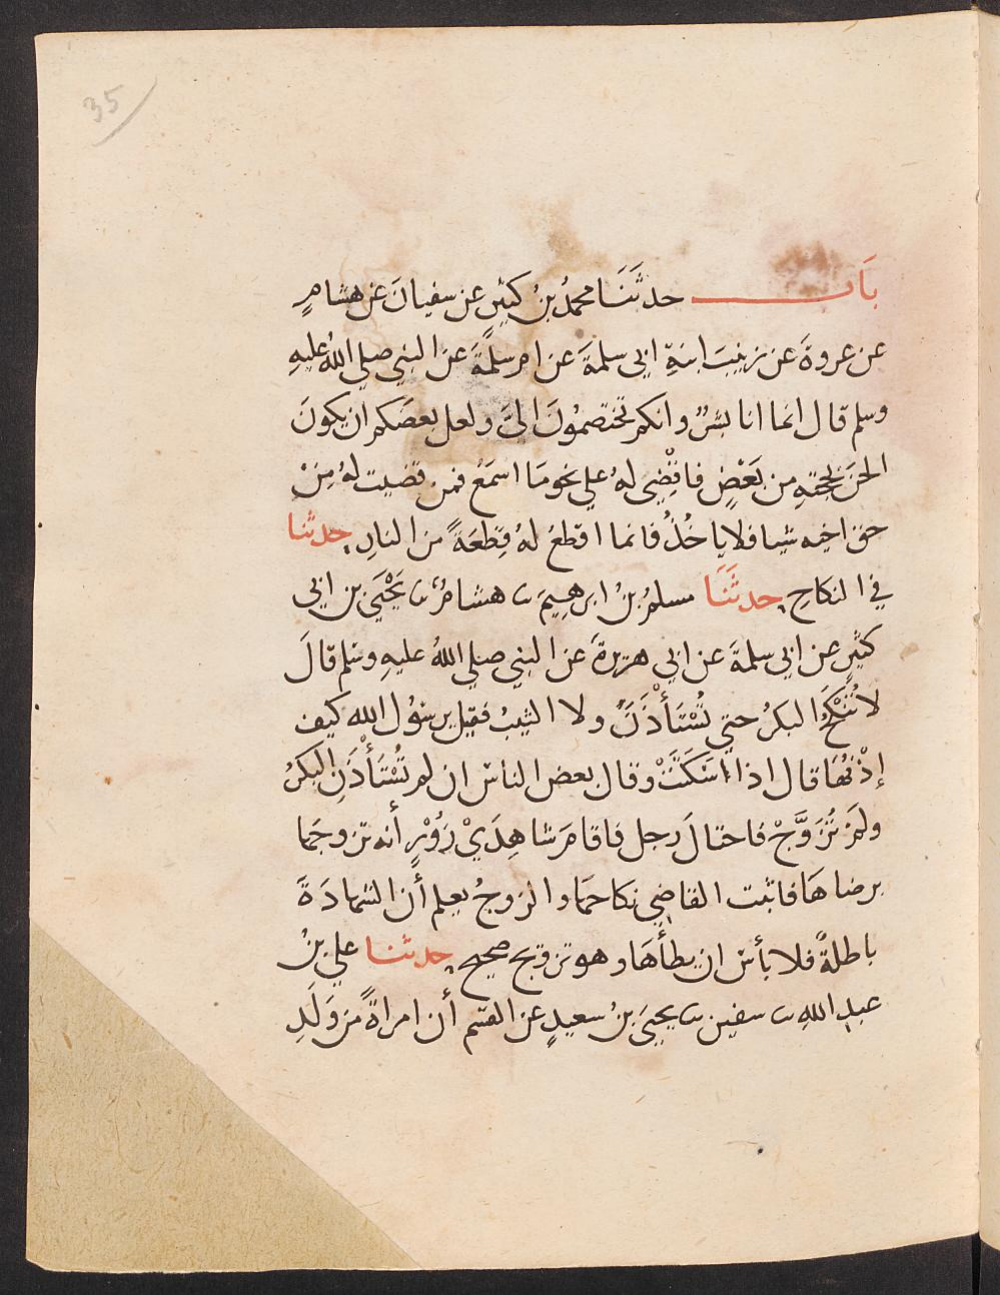 35
بَاب حدثَنَا محمدُ بنُ كثيرٍ عن سفيانَ عن هشامٍ
عن عروةَ عن زينبَ ابنةِ ابي سلمةَ عن ام سلمةَ عن النبي صلي اللهُ عليهِ
وسلم قال انما انا بشرٌ وانكم تختصمُونَ اليَّ ولعل بعضَكم ان يكونَ
الحنَ بحجتهِ من بَعْضٍ فاقْضِي لهُ علي نحو مَا اسمَعُ فمن قضيت لهُ مِنْ
حق اخيه شيا فلا ياخُذُ فانما اقطعُ لهُ قِطعَةً من النارِ حدثنا
في النكاحِ حدثَنَا مسلمُ بنُ ابرهيمَ ثنا هشامٌ ثنا يَحْيَي بن ابي
كثيرٍ عن ابي سلمةَ عن ابي هريرةَ عن النبي صلي اللهُ عليهِ وسَلم قالَ
لا تُنْكَحُ البكرُ حتي تُسْتَأْذَنَ ولا الثيبُ فقيل يرسُول الله كيف
إذْنُهَا قال اذا سَكَتَتْ وقال بعض الناس ان لم تُسْتَأْذَنِ البكرُ
ولمْ تُزَوَّجْ فاحتالَ رجل فاقامَ شاهِدَيْ زُوْرٍ أنه تزوجَها
برضاهَا فاثبت القاضِي نكاحهَا والزوجُ يعلم أن الشهادَةَ
باطلةٌ فلا بأسَ ان يطأَهَا وهو تزويج صحيح حدثنا علي بنُ
عبدِ اللهِ ثنا سفين ثنا يحيَي بنُ سعيدٍ عن القسم أن امراةً من وَلَدِ